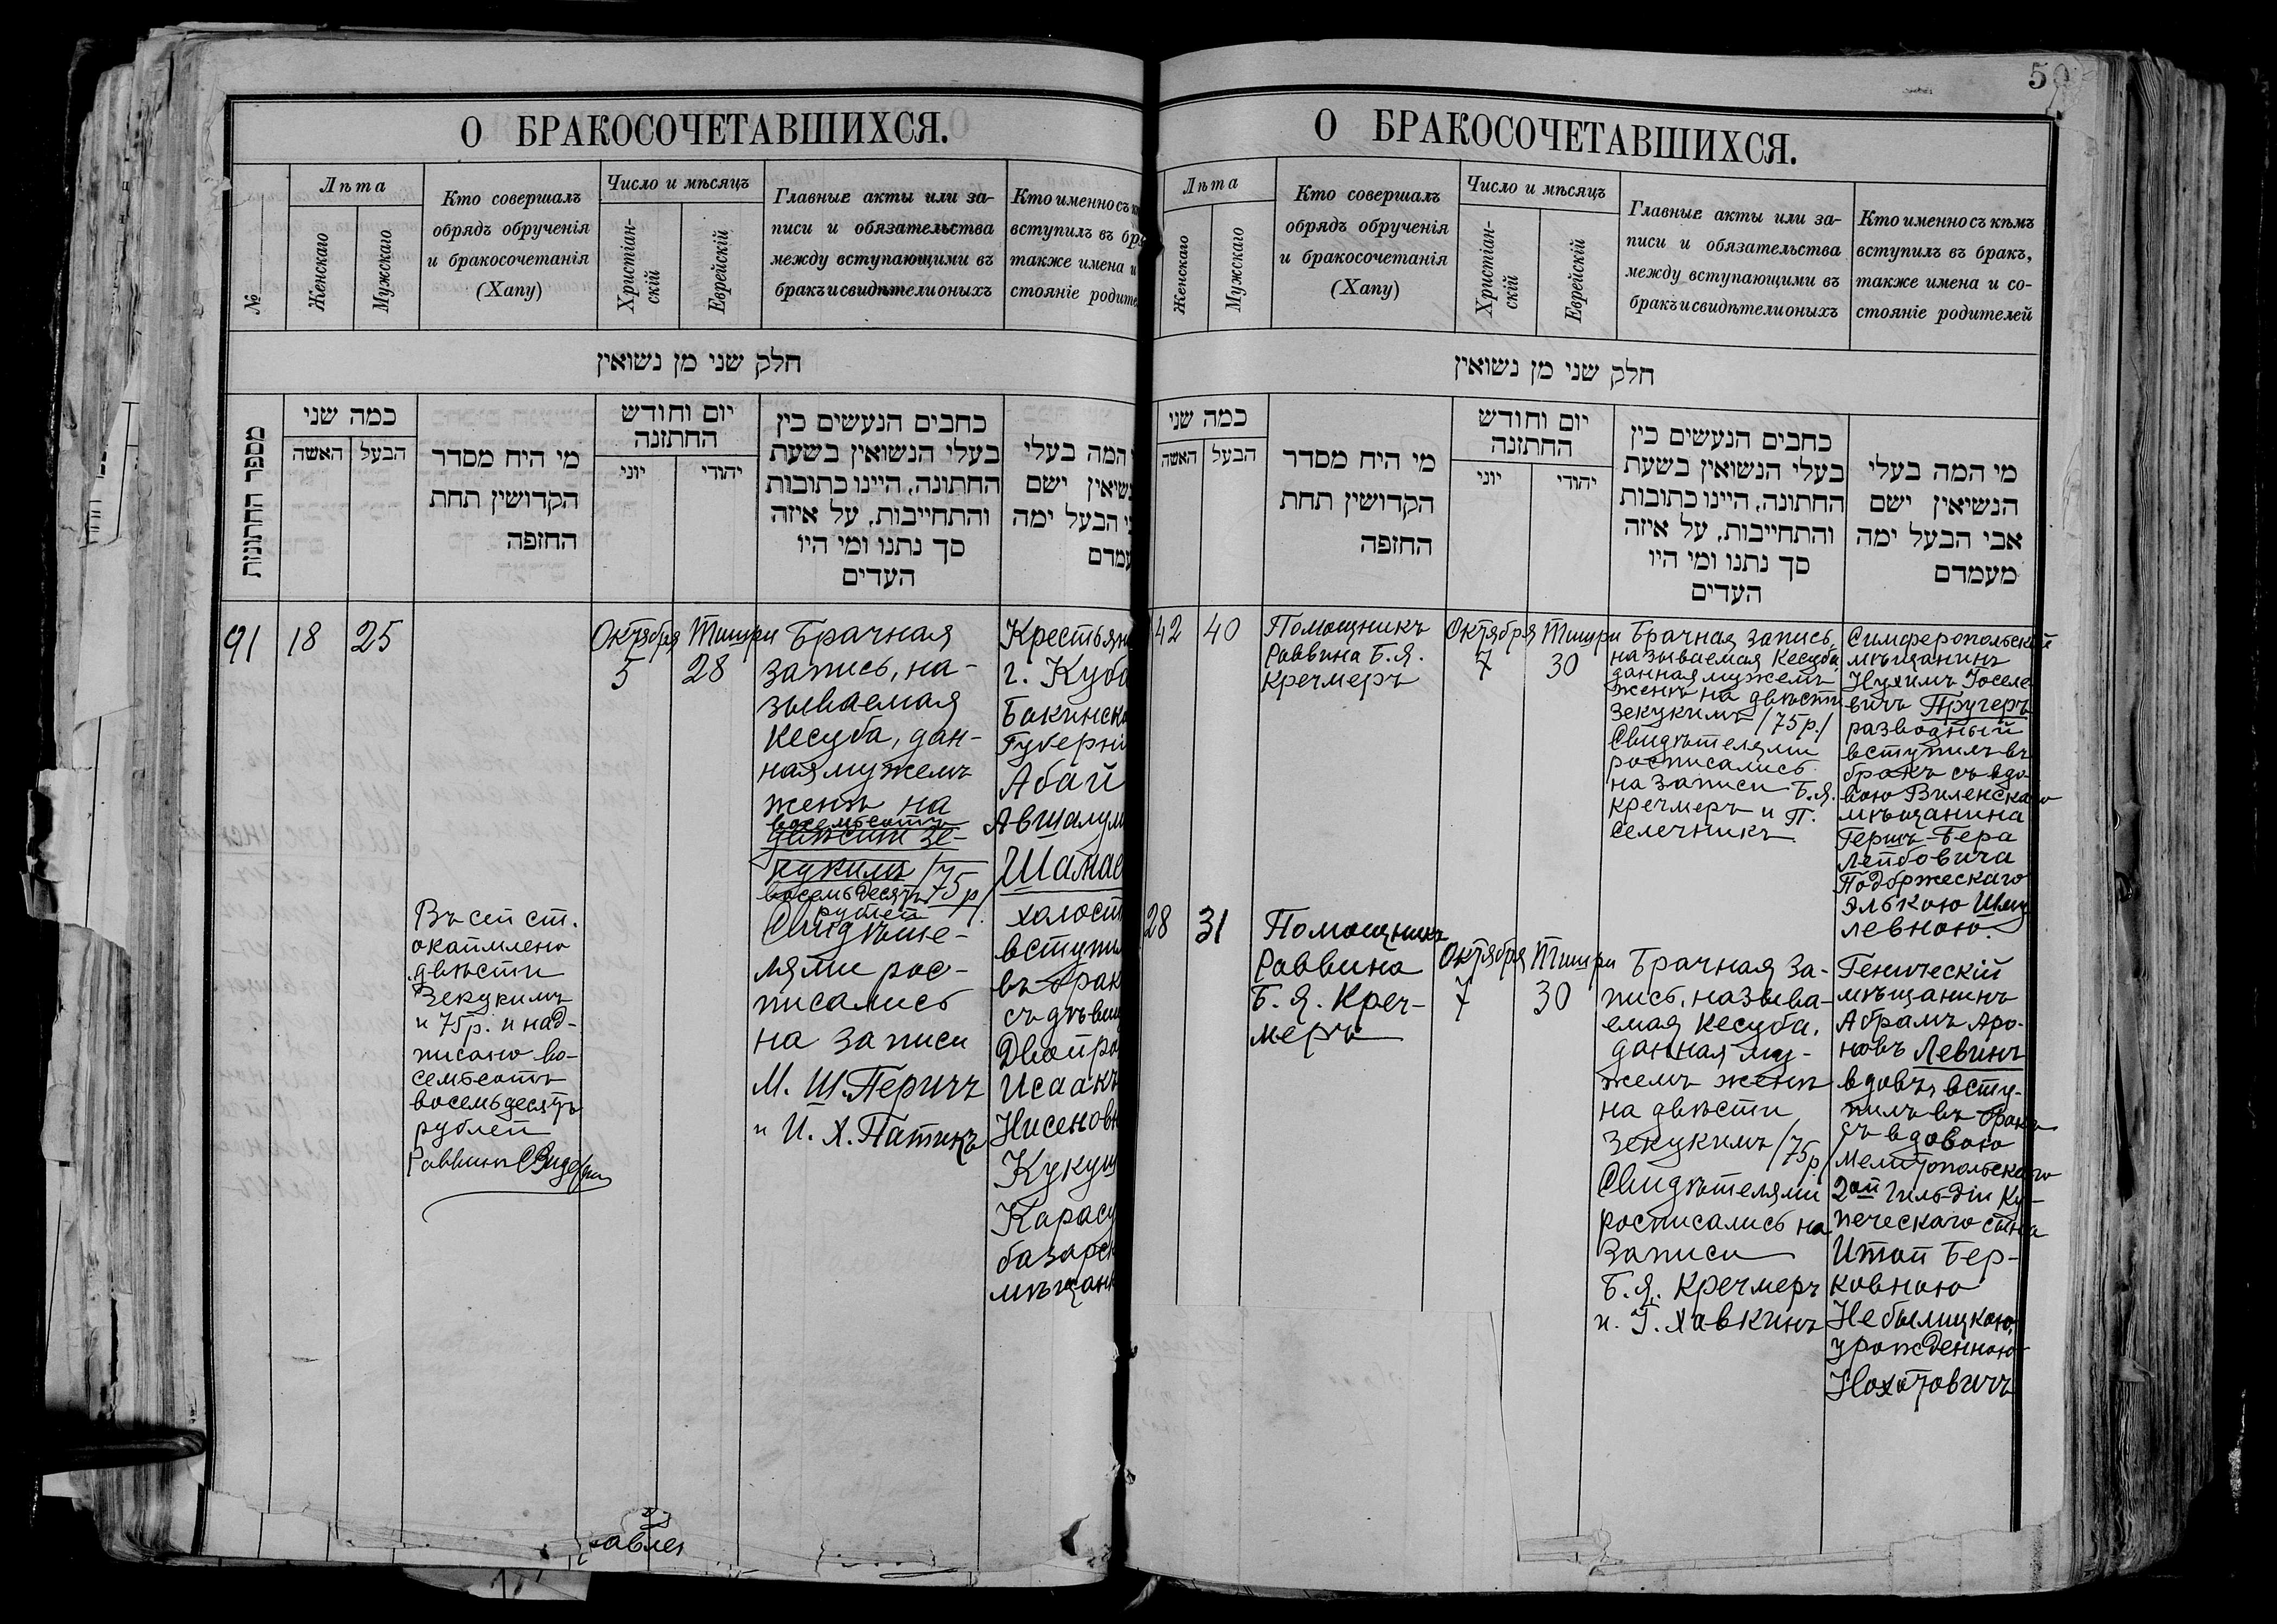 О БРАКОСОЧЕТАВШИХСЯ.
№
Лѣта
Женскаго
Мужскаго
Кто совершалъ
обрядъ обрученія
и бракосочетанія
(Хапу)
Число и мѣсяцъ
Христіан-
скій
Еврейскій
Главные акты или за-
писи и обязательства
между вступающими въ
бракъ и свидѣтели оныхъ
Кто именно съ
вступилъ въ бр
также имена и
стояніе родите
חלק שני מן נשואין
מספר החתונות
כמה שני
האשה
הבעל
מי היח מסדר
הקדושין תחת
החזפה
יום וחודש
החתזנה
יוני
יהודי
כחבים הנעשים כין
בעלי הנשואין בשעת
החתונה, היינו כתובות
והתחייבות, על איזה
סך נתנו ומי היו
העדים
המה בעלי
נשיאין ישם
הבעל ימה
עמדם
91
18
25
Въ сей ст.
окаймлено
двѣсти
Зекукимъ
и 75 р. и над-
писано во-
семьсотъ
восемьдесятъ
рублей
Раввинъ
Октября
5
Тишри
28
Брачная
запись, на-
зываемая
Кесуба, дан-
ная мужемъ
женѣ на
восемьсотъ
двѣсти зе-
кукимъ /75 р/
восемьдесятъ
рублей
Свидѣте-
лями рос-
писались
на записи
М. Ш. Перичъ
и И. Х. Патикъ
Крестьян
г. Куба
Бакинско
Губерні
Абай
Авшалум
Шамае
холост
вступи
въ брак
съ дѣвиц
Двойро
Исаакъ
Нисеновн
Кукуш
Карасу
базарск
мѣщанк
авлен
50
О БРАКОСОЧЕТАВШИХСЯ.
Лѣта
Женскаго
Мужскаго
Кто совершалъ
обрядъ обрученія
и бракосочетанія
(Хапу)
Число и мѣсяцъ
Христіан-
скій
Еврейскій
Главные акты или за-
писи и обязательства
между вступающими въ
бракъ и свидѣтели оныхъ
Кто именно съ кѣмъ
вступилъ въ бракъ,
также имена и со-
стояніе родителей
חלק שני מן נשואין
כמה שני
האשה
הבעל
מי היח מסדר
הקדושין תחת
החזפה
יום וחודש
החתזנה
יוני
יהודי
כחבים הנעשים כין
בעלי הנשואין בשעת
החתונה, היינו כתובות
והתחייבות, על איזה
סך נתנו ומי היו
העדים
מי המה בעלי
הנשיאין ישם
אבי הבעל ימה
מעמדם
42
40
Помощникъ
Раввина Б. Я.
Кречмеръ
Октября
7
Тишри
30
Брачная запись,
называемая Кесуба,
данная мужемъ
женѣ на двѣсти
Зекукимъ /75 р./
Свидѣтелями
росписались
на записи Б. Я.
Кречмеръ и П.
Селечникъ
Симферопольскій
мѣщанинъ
Нухимъ Іоселе-
вичъ Пругеръ
разводный
вступилъ въ
бракъ съ вдо-
вою Виленскаго
мѣщанина
Гершъ-Бера
Лейбовича
Подбржескаго
Элькою Шму
левною.
28
31
Помощникъ
Раввина
Б. Я. Креч-
меръ
Октября
7
Тишри
30
Брачная за-
пись, называ-
емая Кесуба,
данная му-
жемъ женѣ
на двѣсти
Зекукимъ /75 р/
Свидѣтелями
росписались на
Записи
Б. Я. Кречмеръ
и Г. Хавкинъ
Геническій
мѣщанинъ
Абрамъ Аро-
новъ Левинъ
вдовъ, всту-
пилъ въ бракъ
съ вдовою
Мелитопольскаго
2ой Гильдіи Ку-
печескаго сына
Итой Бер-
ковною
Небылицкою,
урожденною
Нохотовичъ